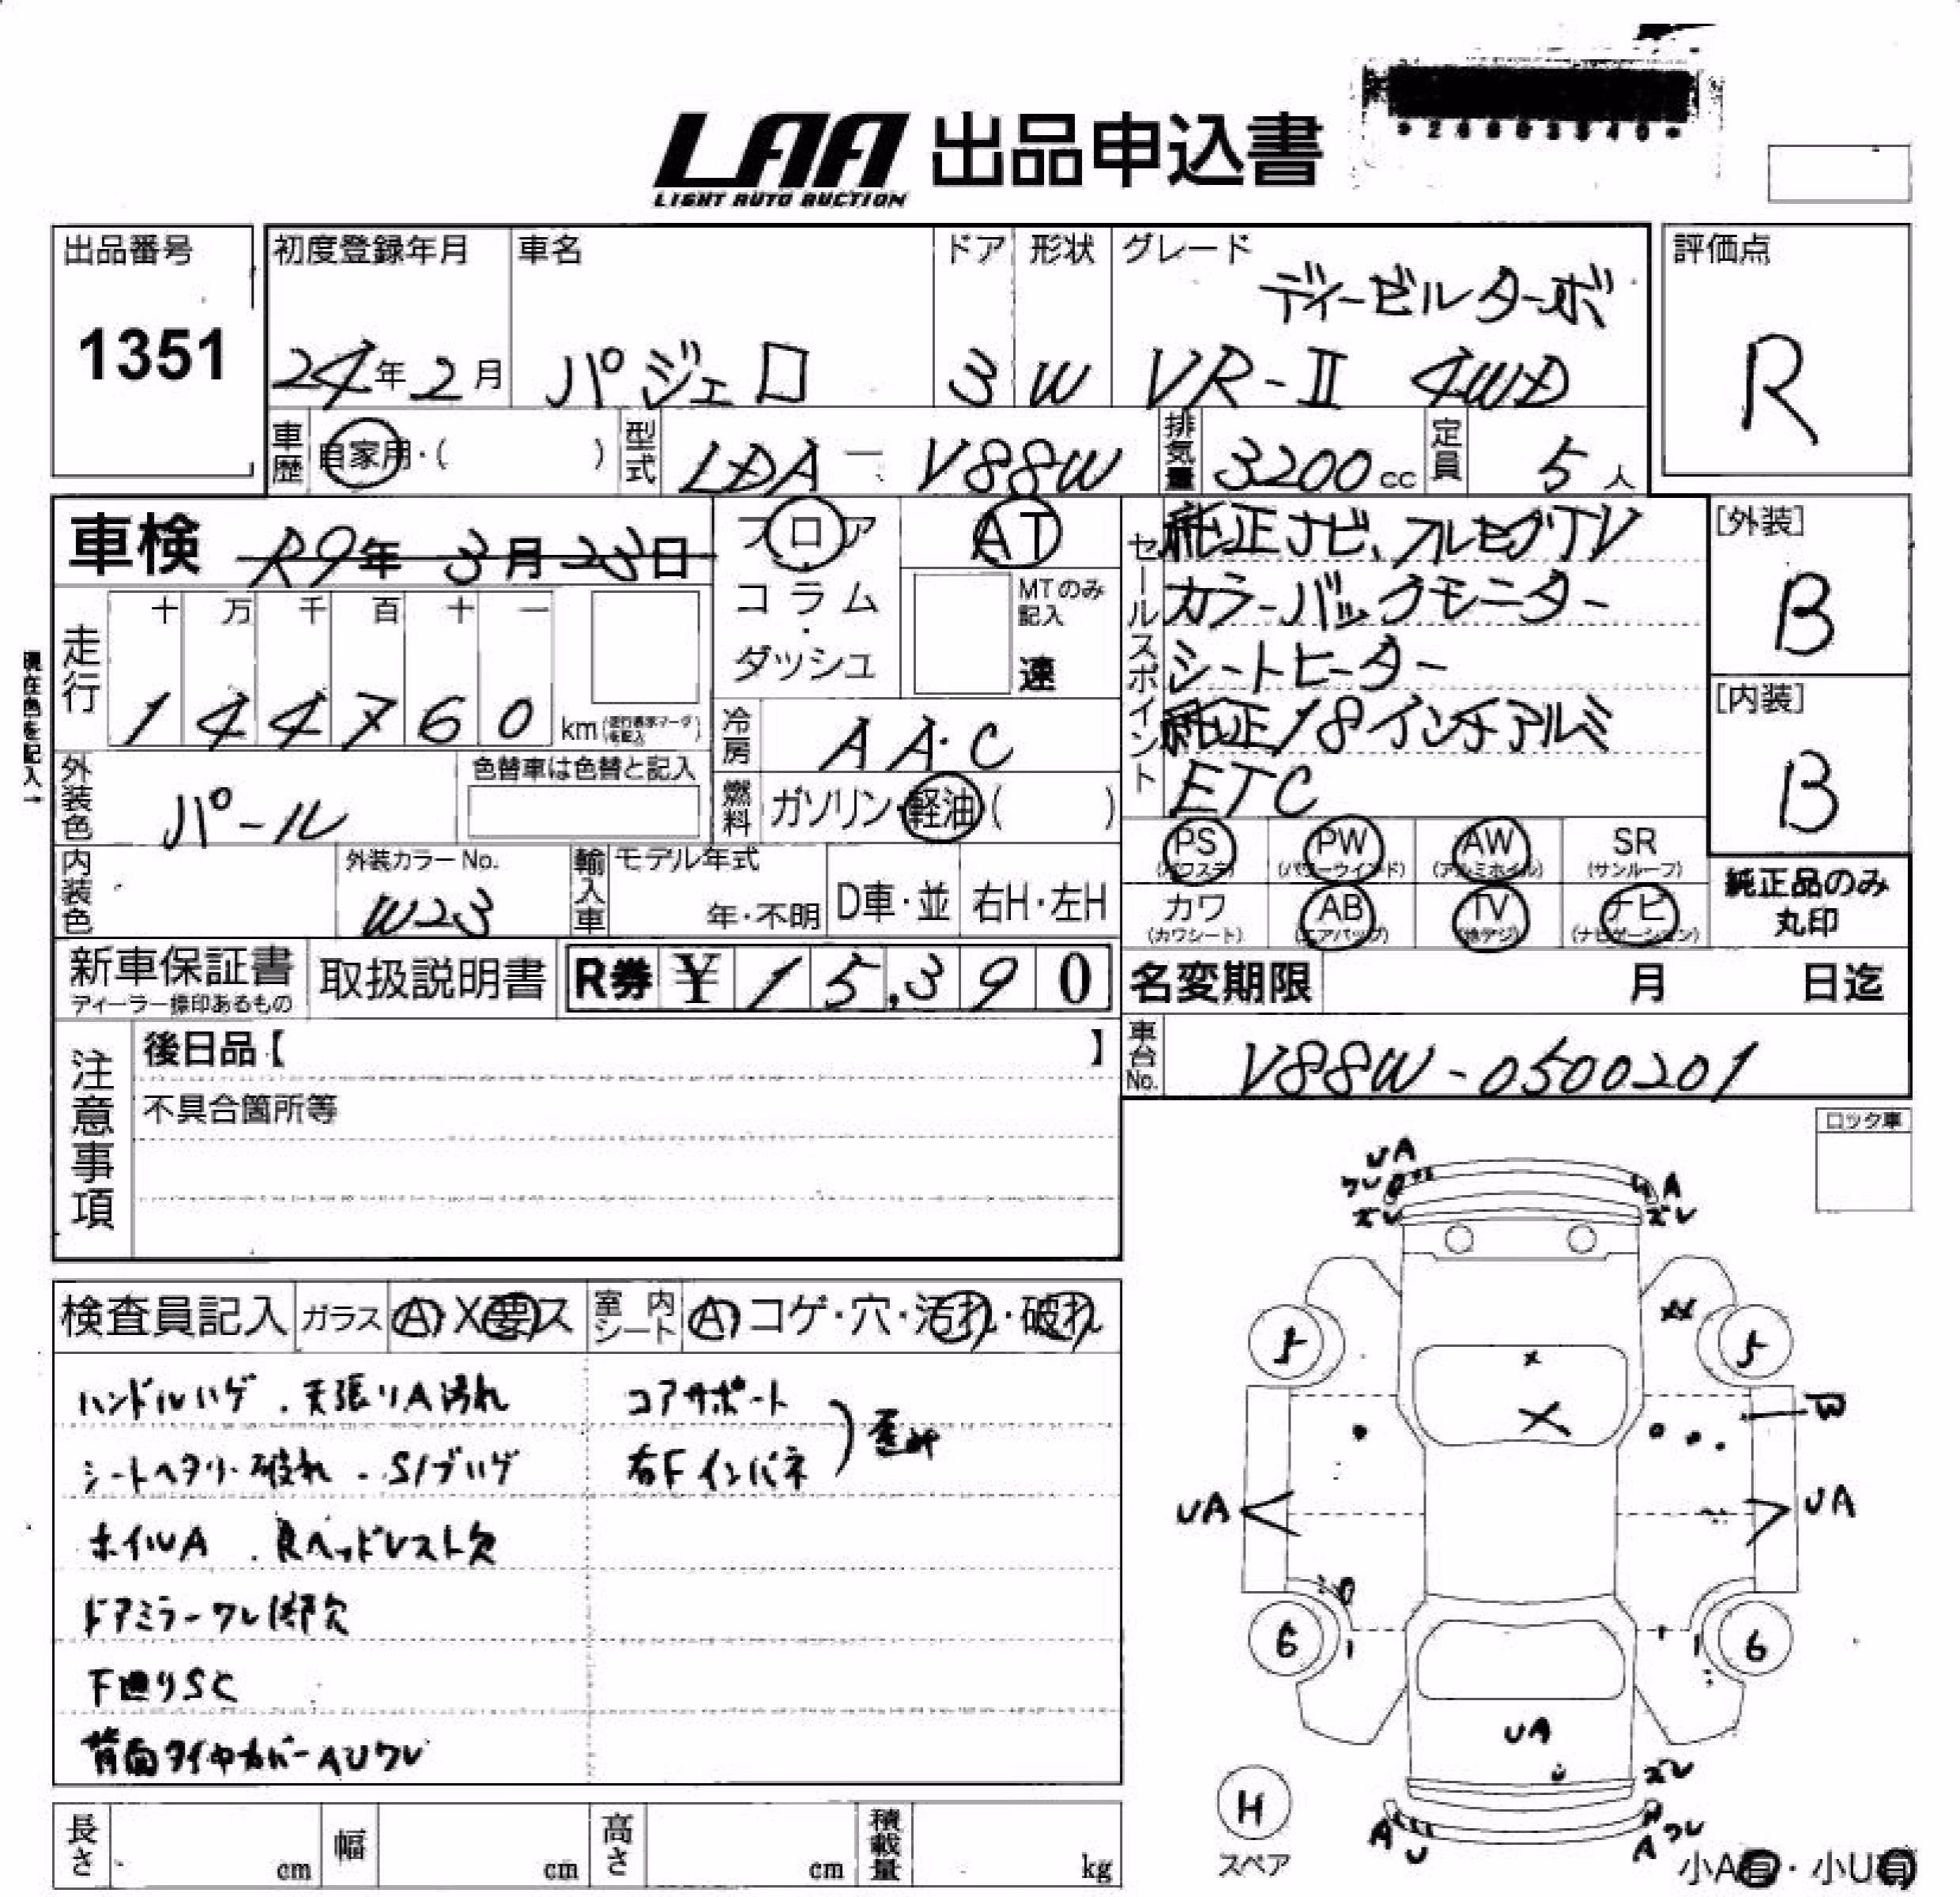 LAA 出品申込書
LIGHT AUTO AUCTION
出品番号
1351
初度登録年月
24年2月
車名
パジェロ
ドア
3
形状
W
グレード
ディーゼルターボ
VR-II 4WD
評価点
R
車歴
自家用・( )
型式
LDA-V88W
排気量
3200cc
定員
5人
車検 R9年3月23日
フロア
コラム・
ダッシュ
AT
MTのみ記入
速
走行
十 万 千 百 十 一
144760 km
現在色を記入→
冷房
AA・C
外装色
パール
色替車は色替と記入
燃料
ガソリン・軽油( )
内装色
外装カラーNo.
W23
輸入車
モデル年式
年・不明
D車・並
右H・左H
新車保証書
取扱説明書
R券 ¥15,390
セールスポイント
純正ナビ、フルセグTV
カラーバックモニター
シートヒーター
純正18インチアルミ
ETC
[外装]
B
[内装]
B
PS
(パワステ)
PW
(パワーウインド)
AW
(アルミホイル)
SR
(サンルーフ)
カワ
(カワシート)
AB
(エアバッグ)
TV
(地デジ)
ナビ
(ナビゲーション)
純正品のみ
丸印
名変期限 月 日迄
車台No.
V88W-0500201
注意事項
後日品【 】
不具合箇所等
ロック車
検査員記入
ガラス
A・X要ス
室内シート
A・コゲ・穴・汚れ・破れ
ハンドルハゲ.天張りA汚れ
シートヘタリ・破れ.S/ブハゲ
ホイルA
ヘッドレスト欠
ドアミラーワレ1部欠
下廻りSC
背面タイヤカバーAUワレ
コアサポート
右Fインパネ
歪み
UA
ワレ
ズレ
A
ズレ
XX
5
5
X
X
B
UA
UA
6
6
UA
ズレ
A
U
A
ワレ
H
スペア
小A有・小U有
長さ cm
幅 cm
高さ cm
積載量 kg